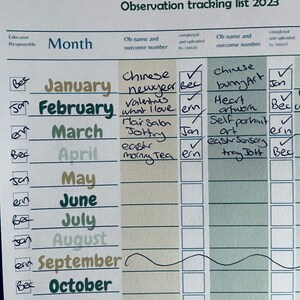 Observation tracking list 2023
Educator Responsible Month Ob name and outcome number completed and uploaded by (initial) Ob name and outcome number completed and uploaded by (initial)
Bec January Chinese new year ✓ Bec Chinese bunny Art ✓ Jan
Jan February Valentines what I love ✓ erin Heart artwork ✓ Bec
erin March Hair Salon JoHny ✓ Jan Self portrait art ✓ erin
Bec April easter morning Tea ✓ erin easter Sensory tray ✓ Bec
Jan May
erin June
Bec July
Jan August
erin September
Bec October